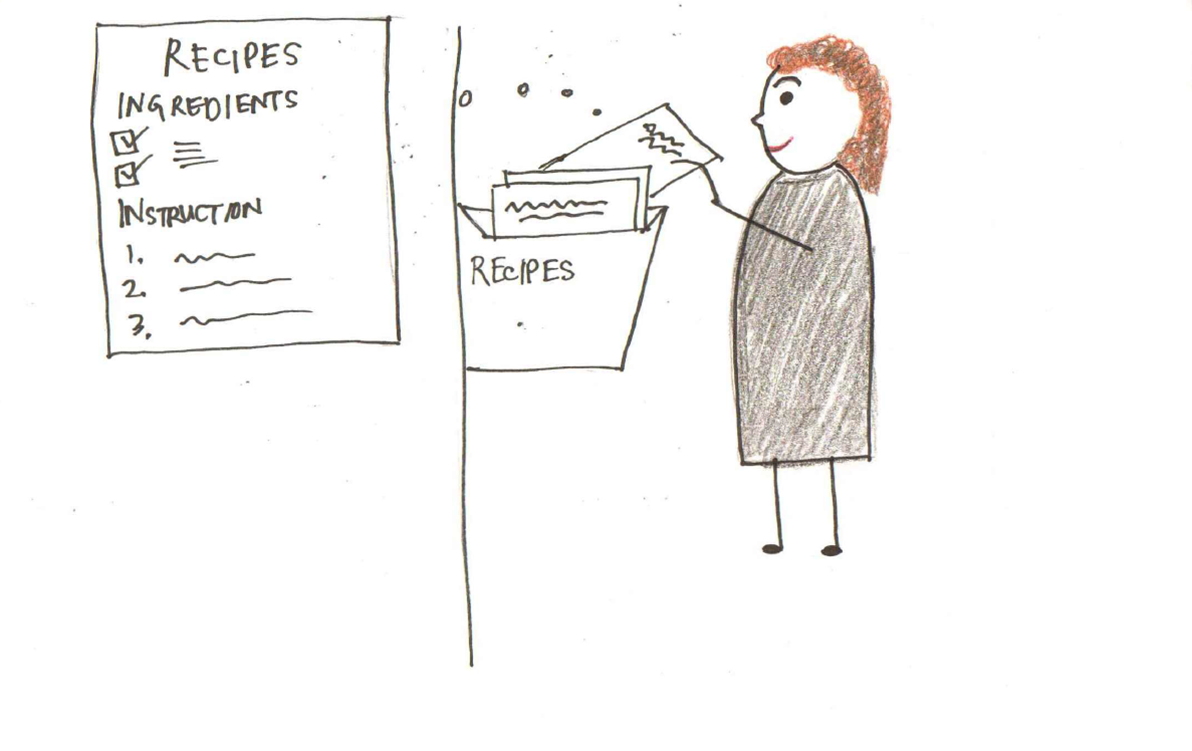 RECIPES
INGREDIENTS
INSTRUCTION
1.
2.
3.
RECIPES